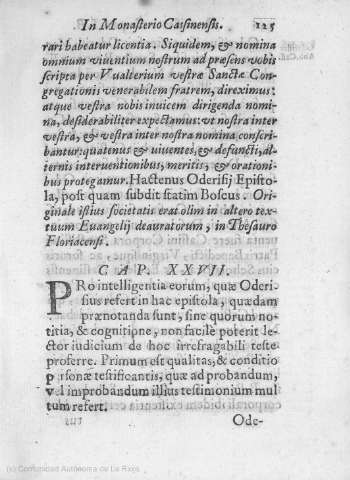 In Monasterio Casinensis. 125
rari habeatur licentia. Siquidem, & nomina
omnium viuentium nostrum ad præsens vobis
scripta per Vualterium vestræ Sanctæ Con-
gregationis venerabilem fratrem, direximus:
atque vestra nobis inuicem dirigenda nomi-
na, desiderabiliter expectamus: vt nostra inter
vestra, & vestra inter nostra nomina conscri-
bantur: quatenus & uiuentes, & defuncti, al-
ternis interuentionibus, meritis, & orationi-
bus protegamur. Hactenus Oderisij Episto-
la, post quam subdit statim Boscus. Ori-
ginale istius societatis erat olim in altero tex-
tuum Euangelij deauratorum, in Thesauro
Floriacensi.
CAP. XXVII.
PRo intelligentia eorum, quæ Oderi-
sius refert in hac epistola, quædam
prænotanda sunt, sine quorum no-
titia, & cognitione, non facile poterit le-
ctor iudicium de hoc irrefragabili teste
proferre. Primum est qualitas, & conditio
personæ testificantis, quæ ad probandum,
vel improbandum illius testimonium mul
tum refert.
Ode-
(c) Comunidad Autónoma de La Rioja